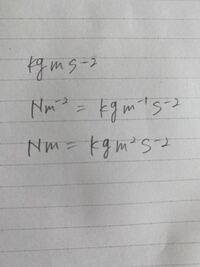 kg m s-2
Nm⁻² = kg m⁻¹ s⁻²
Nm = kg m² s⁻²